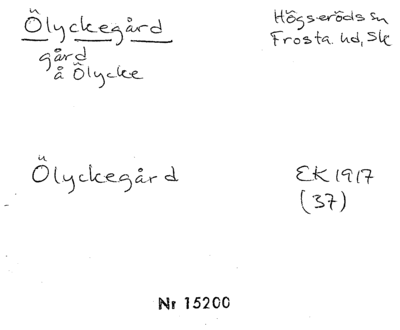 Ölyckegård
gård
å Ölycke
Högseröds sn
Frosta hd, Sk
Ölyckegård
EK 1917
(37)
Nr 15200